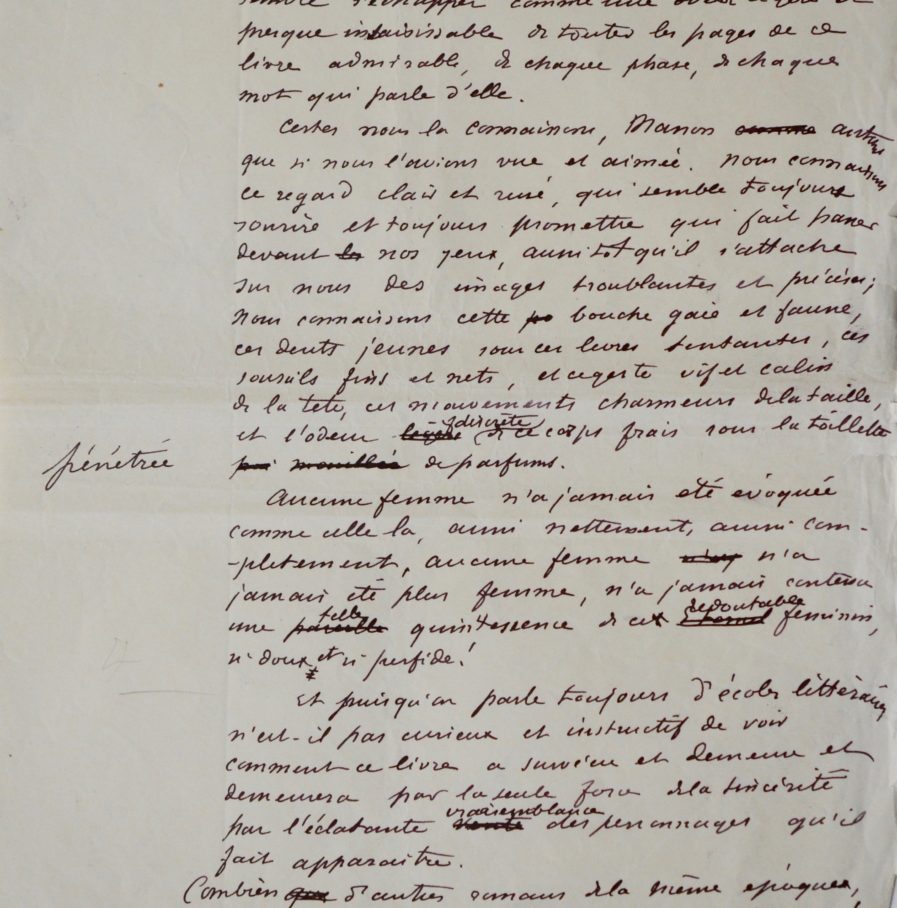 presque insaisissable de toutes les pages de ce
livre admirable, de chaque phase, de chaque
mot qui parle d'elle.
Certes nous la connaissons, Manon comme autant
que si nous l'avions vue et aimée. Nous connaissons
ce regard clair et rusé, qui semble toujours
sourire et toujours promettre qui fait passer
devant les nos yeux, aussitôt qu'il s'attache
sur nous des images troublantes et précises;
Nous connaissons cette bouche gaie et fausse,
ces dents jeunes sous ces levres tentantes, ces
sourcils fins et nets, et ce geste vif et calin
de la tete, ces mouvements charmeurs de la taille,
et l'odeur légère discrète de ce corps frais sous la toillette
pénétrée
mouillée de parfums.
Aucune femme n'a jamais été évoquée
comme celle la, aussi nettement, aussi com-
-pletement, aucune femme n'a
jamais été plus femme, n'a jamais contenu
une pareille telle quintescence de cet Eternel redoutable feminin,
si doux et si perfide!
Et puisqu'on parle toujours d'écoles littéraires
n'est-il pas curieux et instructif de voir
comment ce livre a survécu et demeure et
demeurera par la seule force de la sincérité
par l'éclatante verité vraisemblance des personnages qu'il
fait apparaitre.
Combien que d'autres romans de la même époque,